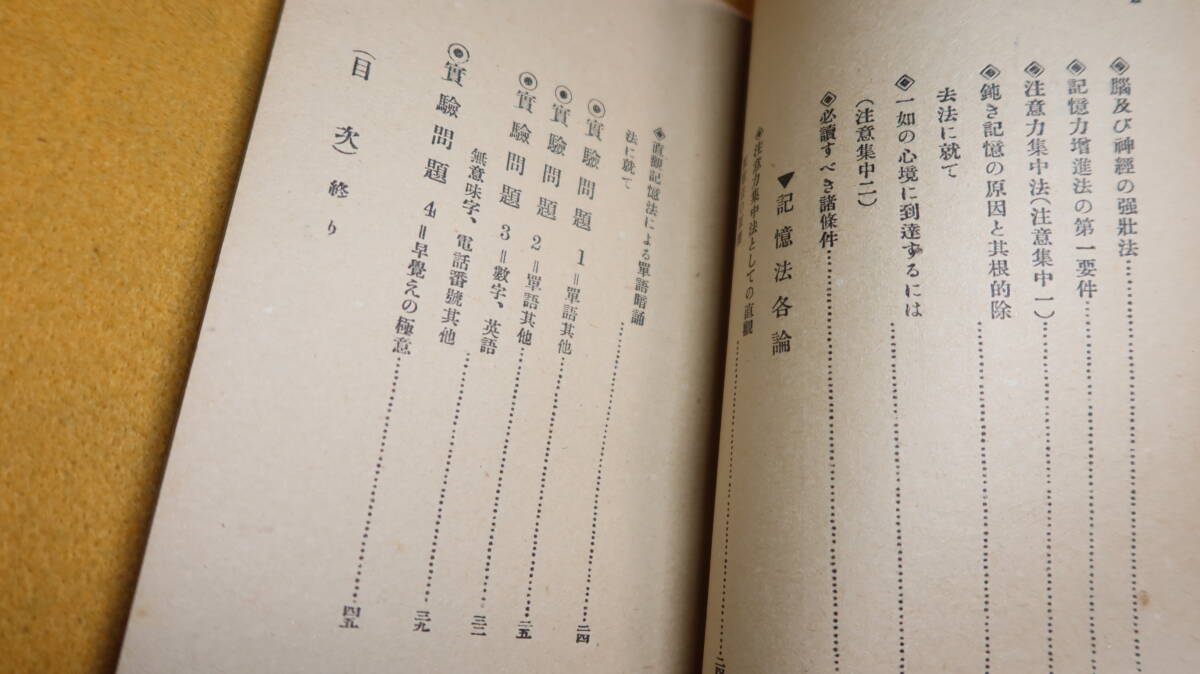 ◈腦及び神經の强壯法
◈記憶力增進法の第一要件
◈注意力集中法(注意集中一)
◈鈍き記憶の原因と其根的除
去法に就て
◈一如の心境に到達するには
(注意集中二)
◈必讀すべき諸條件
▼記憶法各論
◈注意力集中法としての直觀
◈直觀記憶法による單語暗誦
法に就て
◉實驗問題 1=單語其他 二四
◉實驗問題 2=單語其他 二五
◉實驗問題 3=數字、英語 三二
無意味字、電話番號其他 三九
◉實驗問題 4=早覺えの極意 四五
(目次)終り